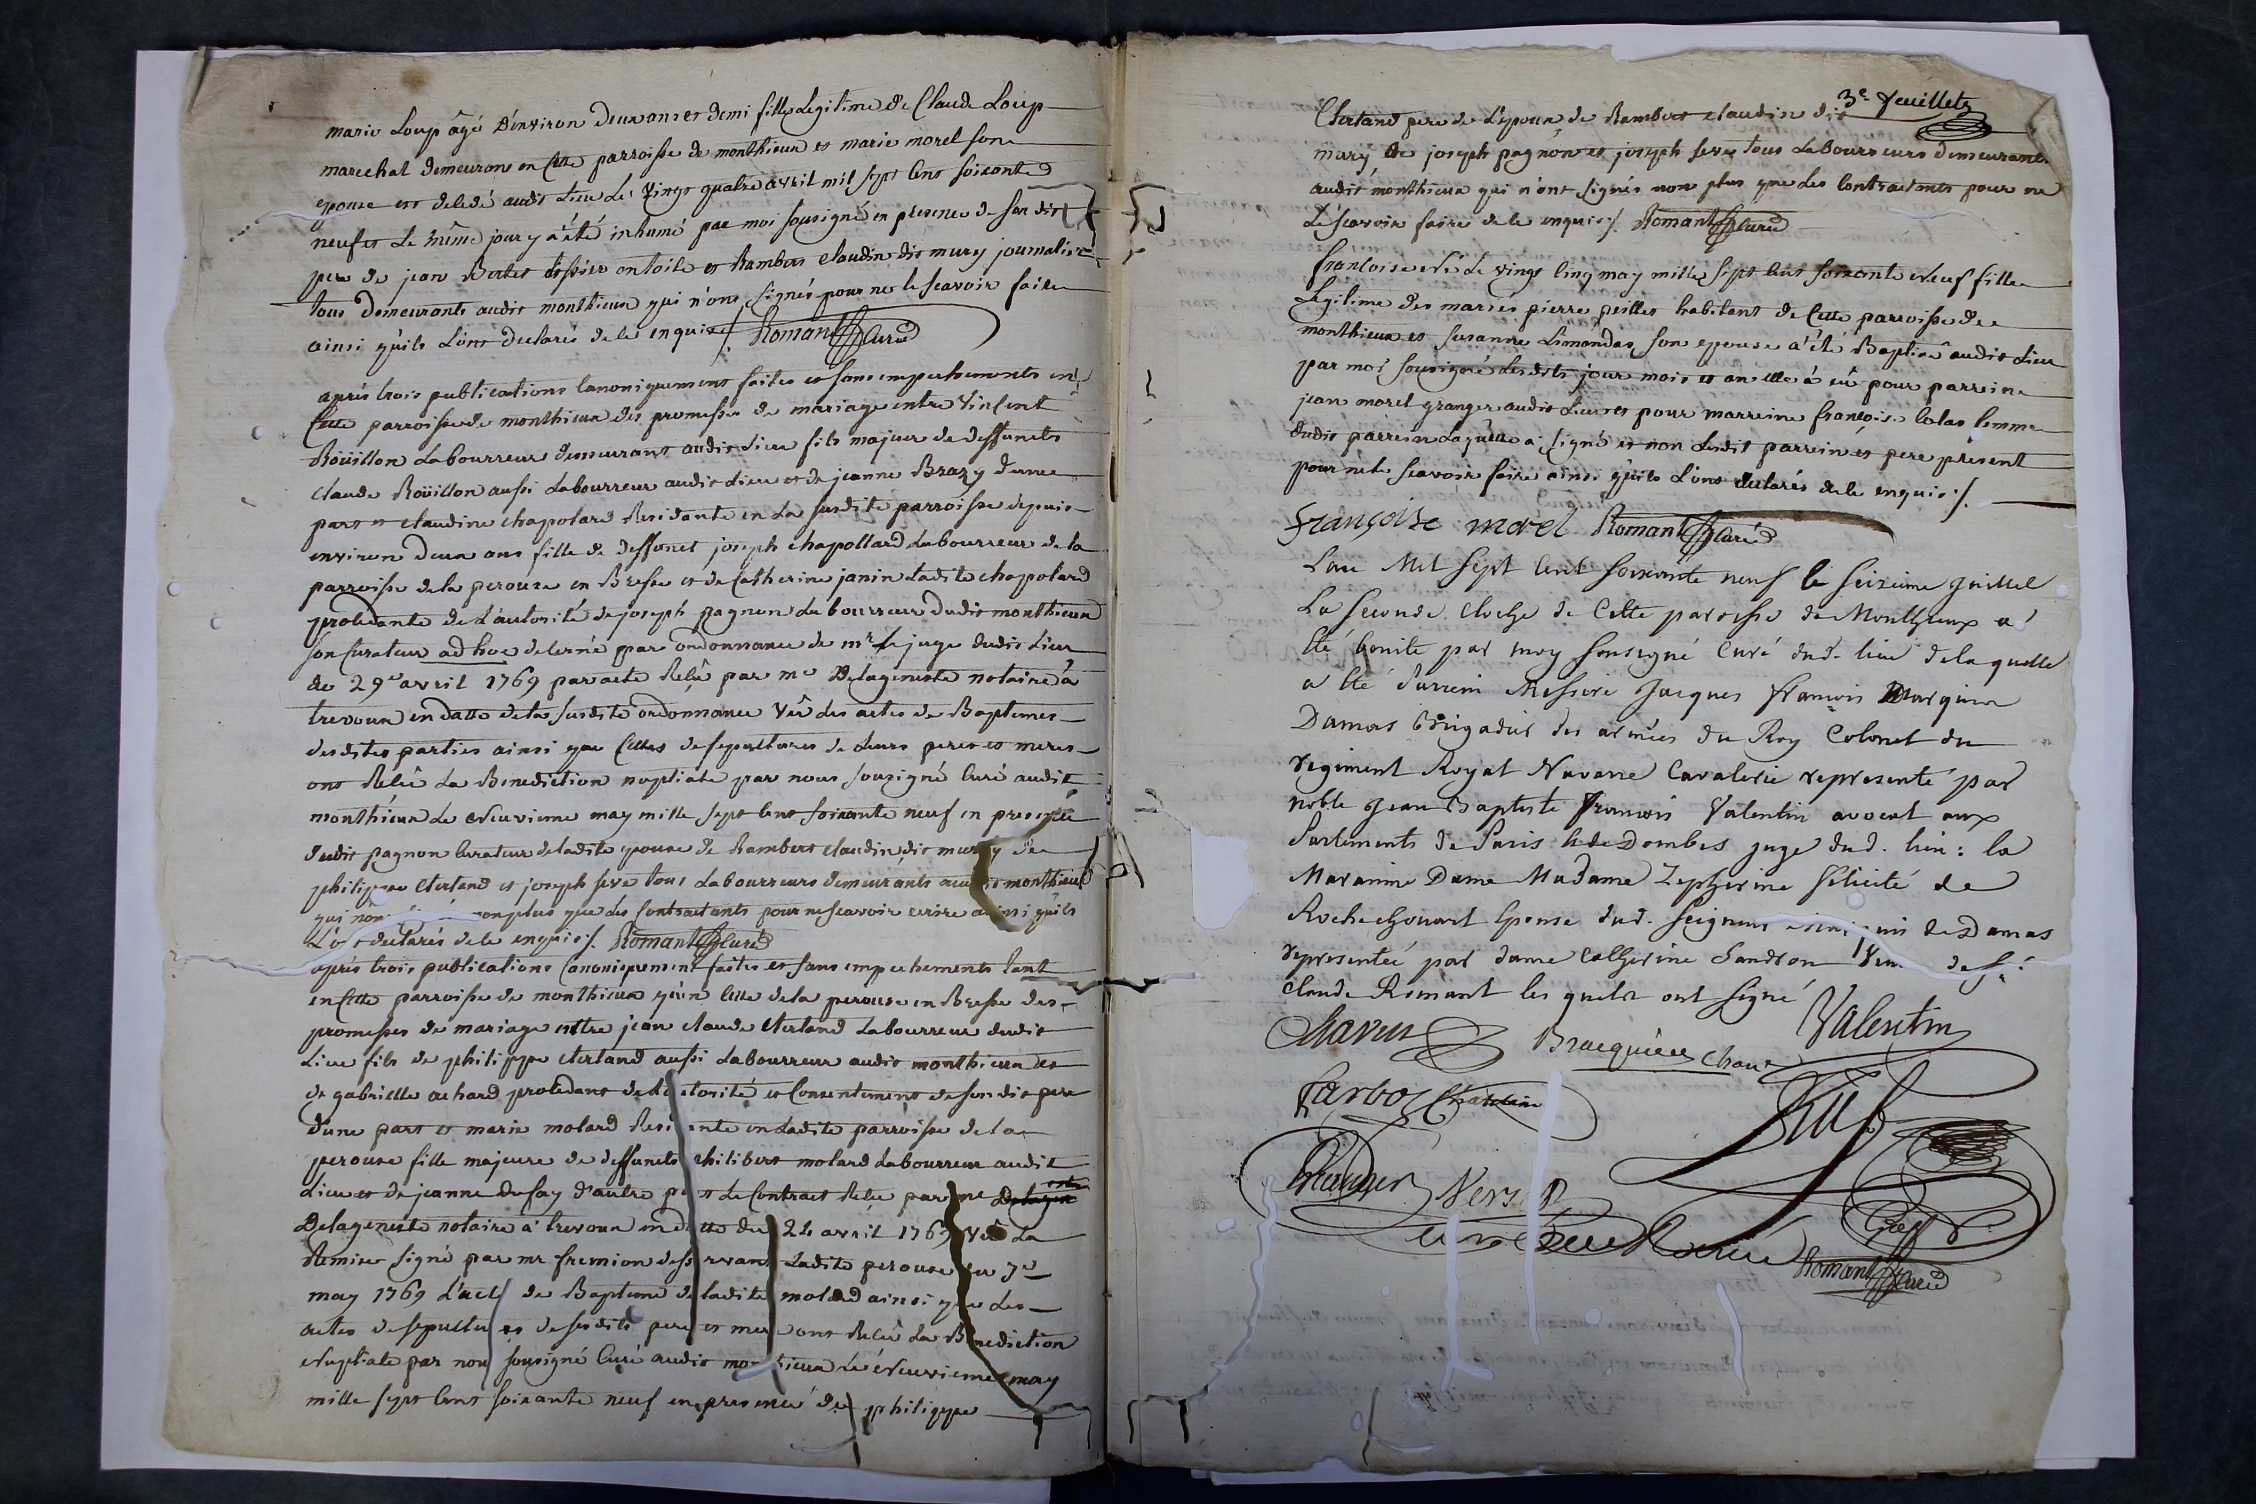 marie Loup âgé d'environ deux ans et demi fille Legitime de Claude Loup
marechal demeurant en Cette parroisse de monthieux et marie morel son
epouse est decedé audit Lieu Le vingt quatre avril mil sept Cent soixante
neuf et Le même jour y a été inhumé par moi sousigné en presence de son dit
pere de jean Bertet tissier en toile et Rambert Claudin dit mury journalier
tous demeurants audit monthieux qui n'ont signés pour ne le scavoir faire
ainsi qu'ils L'ont declarés de ce enquis ./. Romant Curé
aprés trois publications Canoniquement faites et sans empechements en
Cette parroisse de monthieux des promesses de mariage entre Vincent
Roüillon Labourreur demeurant audit Lieu fils majeur de deffuncts
Claude Roüillon aussi Labourreur audit Lieu et de jeanne Brazy d'une
part et Claudine Chapolard Residante en La susdite parroisse depuis
environ deux ans fille de deffunct joseph Chapollard Labourreur de la
parroisse de la perouse en Bresse et de Catherine janin Ladite Chapolard
procedante de L'autorité de joseph pagnon Labourreur dudit monthieux
son Curateur ad hoc decerné par ordonnance de mr Le juge dudit Lieu
du 29e avril 1769 par acte Reçû par me Delageneste notaire à
trevoux en datte de la susdite ordonnance Vû les actes de Baptemes
desdites parties ainsi que Celles de sepultures de Leurs peres et meres
ont Reçû La Benediction nuptiale par nous sousigné Curé audit
monthieux Le neuvieme may mille sept Cent soixante neuf en presence
dudit pagnon Curateur de ladite epouse de Rambert Claudin dit mury de
philippe Cherland et joseph seve tous Labourreurs demeurants audit monthieux
qui non plus que les Contractants pour ne scavoir ecrire ainsi qu'ils
L'ont declarés de ce enquis ./. Romant Curé
après trois publications Canoniquement faites et sans empechements tant
en Cette parroisse de monthieux qu'en Celle de la perouse en Bresse des
promesses de mariage entre jean Claude Cherland Labourreur dudit
Lieu fils de philippe Cherland aussi Labourreur audit monthieux et
de gabrielle achard procedant de L'autorité et Consentement de son dit pere
d'une part et marie molard Residante en Ladite parroisse de la
perouse fille majeure de deffuncts philibert molard Labourreur audit
Lieu et de jeanne dufay d'autre part Le Contract Reçu par me
Delageneste notaire à trevoux en datte du 24 avril 1769 Vû La
Remise signé par mr fremion desservant Ladite perouse du 7e
may 1769 L'acte de Baptême de ladite molard ainsi que Les
actes de sepultures de ses dits pere et mere ont Reçû La Benediction
Nuptiale par nous sousigné Curé audit monthieux Le Neuvieme may
mille sept Cent soixante neuf en presence de philippe
3e feuillets
Cherland pere de L'epoux de Rambert Claudin dit
mury de joseph pagnon et joseph seve tous Labourreurs demeurants
audit monthieux qui n'ont signés non plus que les Contractants pour ne
Le scavoir faire de ce enquis ./. Romant Curé
francoise née Le vingt Cinq may mille sept Cent soixante Neuf fille
Legitime des mariés pierre peillet habitant de Cette parroisse de
monthieux et susanne Limondas son epouse a été Baptisé audit Lieu
par moi sousigné Lesdits jour mois et an elle à eû pour parrein
jean morel granger audit Lieu et pour marreine françoise femme
dudit parrein Laquelle a signé et non Ledit parrein et pere present
pour ne le scavoir faire ainsi qu'ils L'ont declarés de ce enquis ./.
Françoise morel Romant Curé
L'an Mil Sept Cent soixante neuf le Seizieme Juillet
La Seconde Cloche de Cette paroisse de Monthieux a
été benite par moy soussigné Curé dud. lieu de laquelle
a été Parrein Messire Jacques François Marquis
Damas Brigadier des armées du Roy Colonel du
regiment Royal Navarre Cavalerie representé par
noble Jean Baptiste François Valentin avocat aux
Parlements de Paris & de Dombes juge dud. lieu : la
Maraine Dame Madame Zepherine Felicité de
Rochechouart Epouse dud. Seigneur de Damas
representée par dame Catherine Sandron de
Claude Romant les quels ont signé
Valentin
Chan
Romant Curé